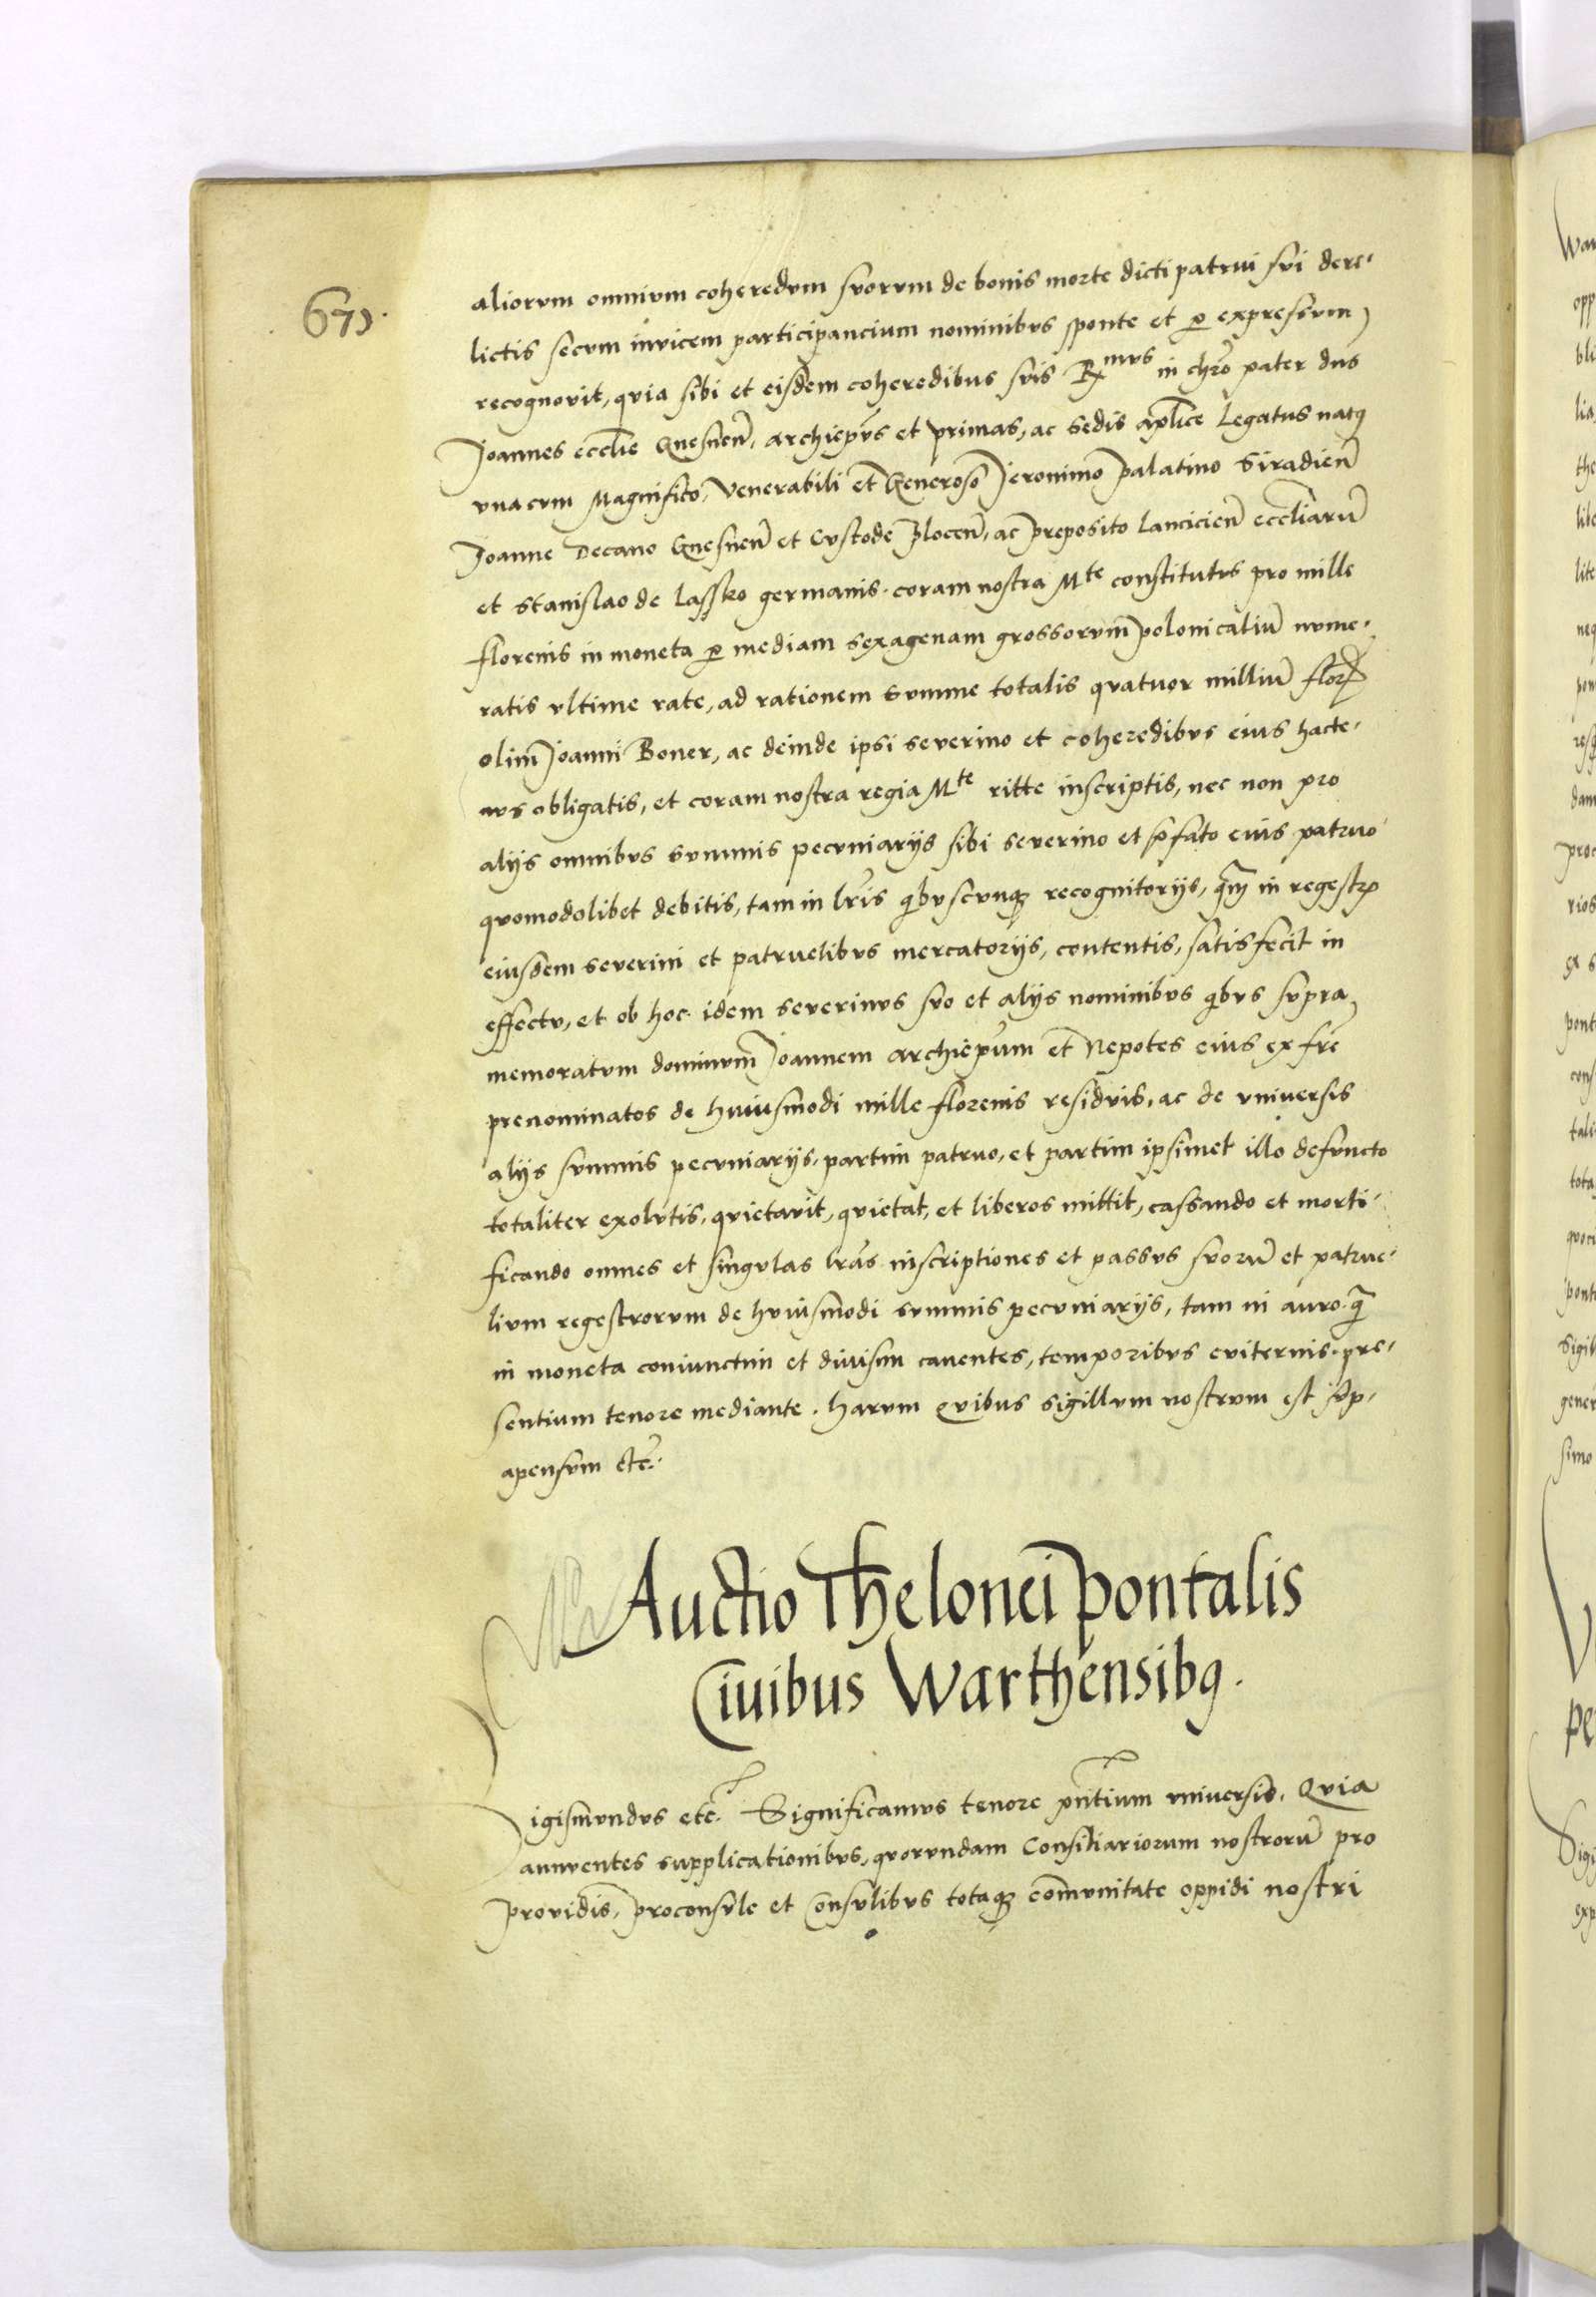 679.
aliorvm omnivm coheredvm svorvm de bonis morte dicti patrui svi dere-
lictis secvm invicem participancium nominibvs sponte et per expressvm
recognovit, qvia sibi et eisdem coheredibus svis Rmvs in chro pater dns
Joannes ecclie Gnesnen̄. archiepvs et primas, ac sedis aplice Legatus natq
vna cvm Magnifico, Venerabili et Generoso Jeronimo palatino Siradien̄
Joanne Decano Gnesnen̄ et Cvstode plocen̄, ac preposito Lancicien̄ eccliarū
et Stanislao de Lassko germanis. coram nostra Mte constitutvs pro mille
florenis in moneta per mediam sexagenam grossorvm polonicaliū nvme-
ratis vltime rate, ad rationem svmme totalis qvatvor milliū flor
olim Joanni Boner, ac deinde ipsi severino et coheredibvs eius hacte-
nvs obligatis, et coram nostra regia Mte ritte inscriptis, nec non pro
alijs omnibvs svmmis pecvniarijs sibi severino et pfato eius patruo
qvomodolibet debitis, tam in lris qbvscvnq recognitorijs, qm in regestr
eiusdem severini et patruelibvs mercatorijs, contentis, satisfecit in
effectv, et ob hoc idem severinvs svo et alijs nominibvs qbvs svpra
memoratvm dominvm Joannem archiepvm et Nepotes eius ex fre
prenominatos de hviusmodi mille florenis residvis, ac de vniversis
alijs svmmis pecvniarijs, partim patrvo, et partim ipsimet illo defvncto
totaliter exolvtis, qvietavit, qvietat, et liberos mittit, cassando et morti-
ficando omnes et singvlas lras inscriptiones et passvs svorū et patrue-
livm regestrorvm de hviusmodi svmmis pecvniarijs, tam in avro. q̄
in moneta coniunctim et divisim caventes, temporibvs eviternis. pre-
sentium tenore mediante. Harvm qvibus sigillvm nostrvm est svp-
apensvm etc.
Auctio Thelonei pontalis
Civibus Warthensibq.
igismvndvs etc. Significamvs tenore pntium vniversis. Qvia
annventes supplicationibvs, qvorvndam Consiliariorum nostrorū pro
providis, proconsvle et Consvlibvs totaq comvnitate oppidi nostri